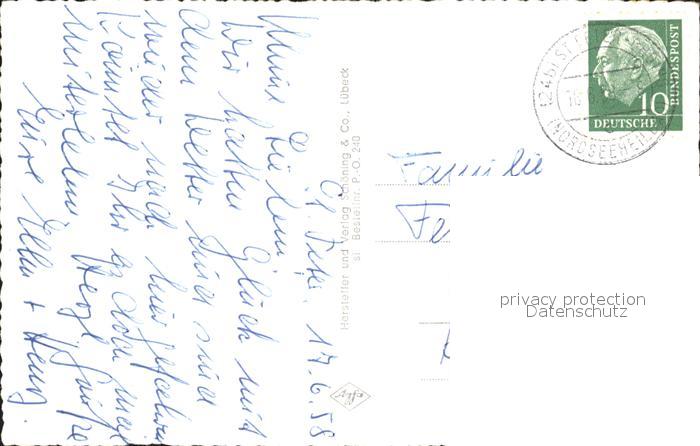 St. Peter. 17.6.58
Meine Lieben!
Wir hatten Glück mit
dem Wetter und sind
wieder nach hier gefahren
Könntet Ihr es doch mal
miterleben. Herzl. Grüße
Eure Ellen + Heinz.
Hersteller und Verlag Schöning & Co., Lübeck
Bestellnr. P.-O. 240
Familie
Fe
(24b) ST
NORDSEEHEIL
10
DEUTSCHE
BUNDESPOST
privacy protection
Datenschutz